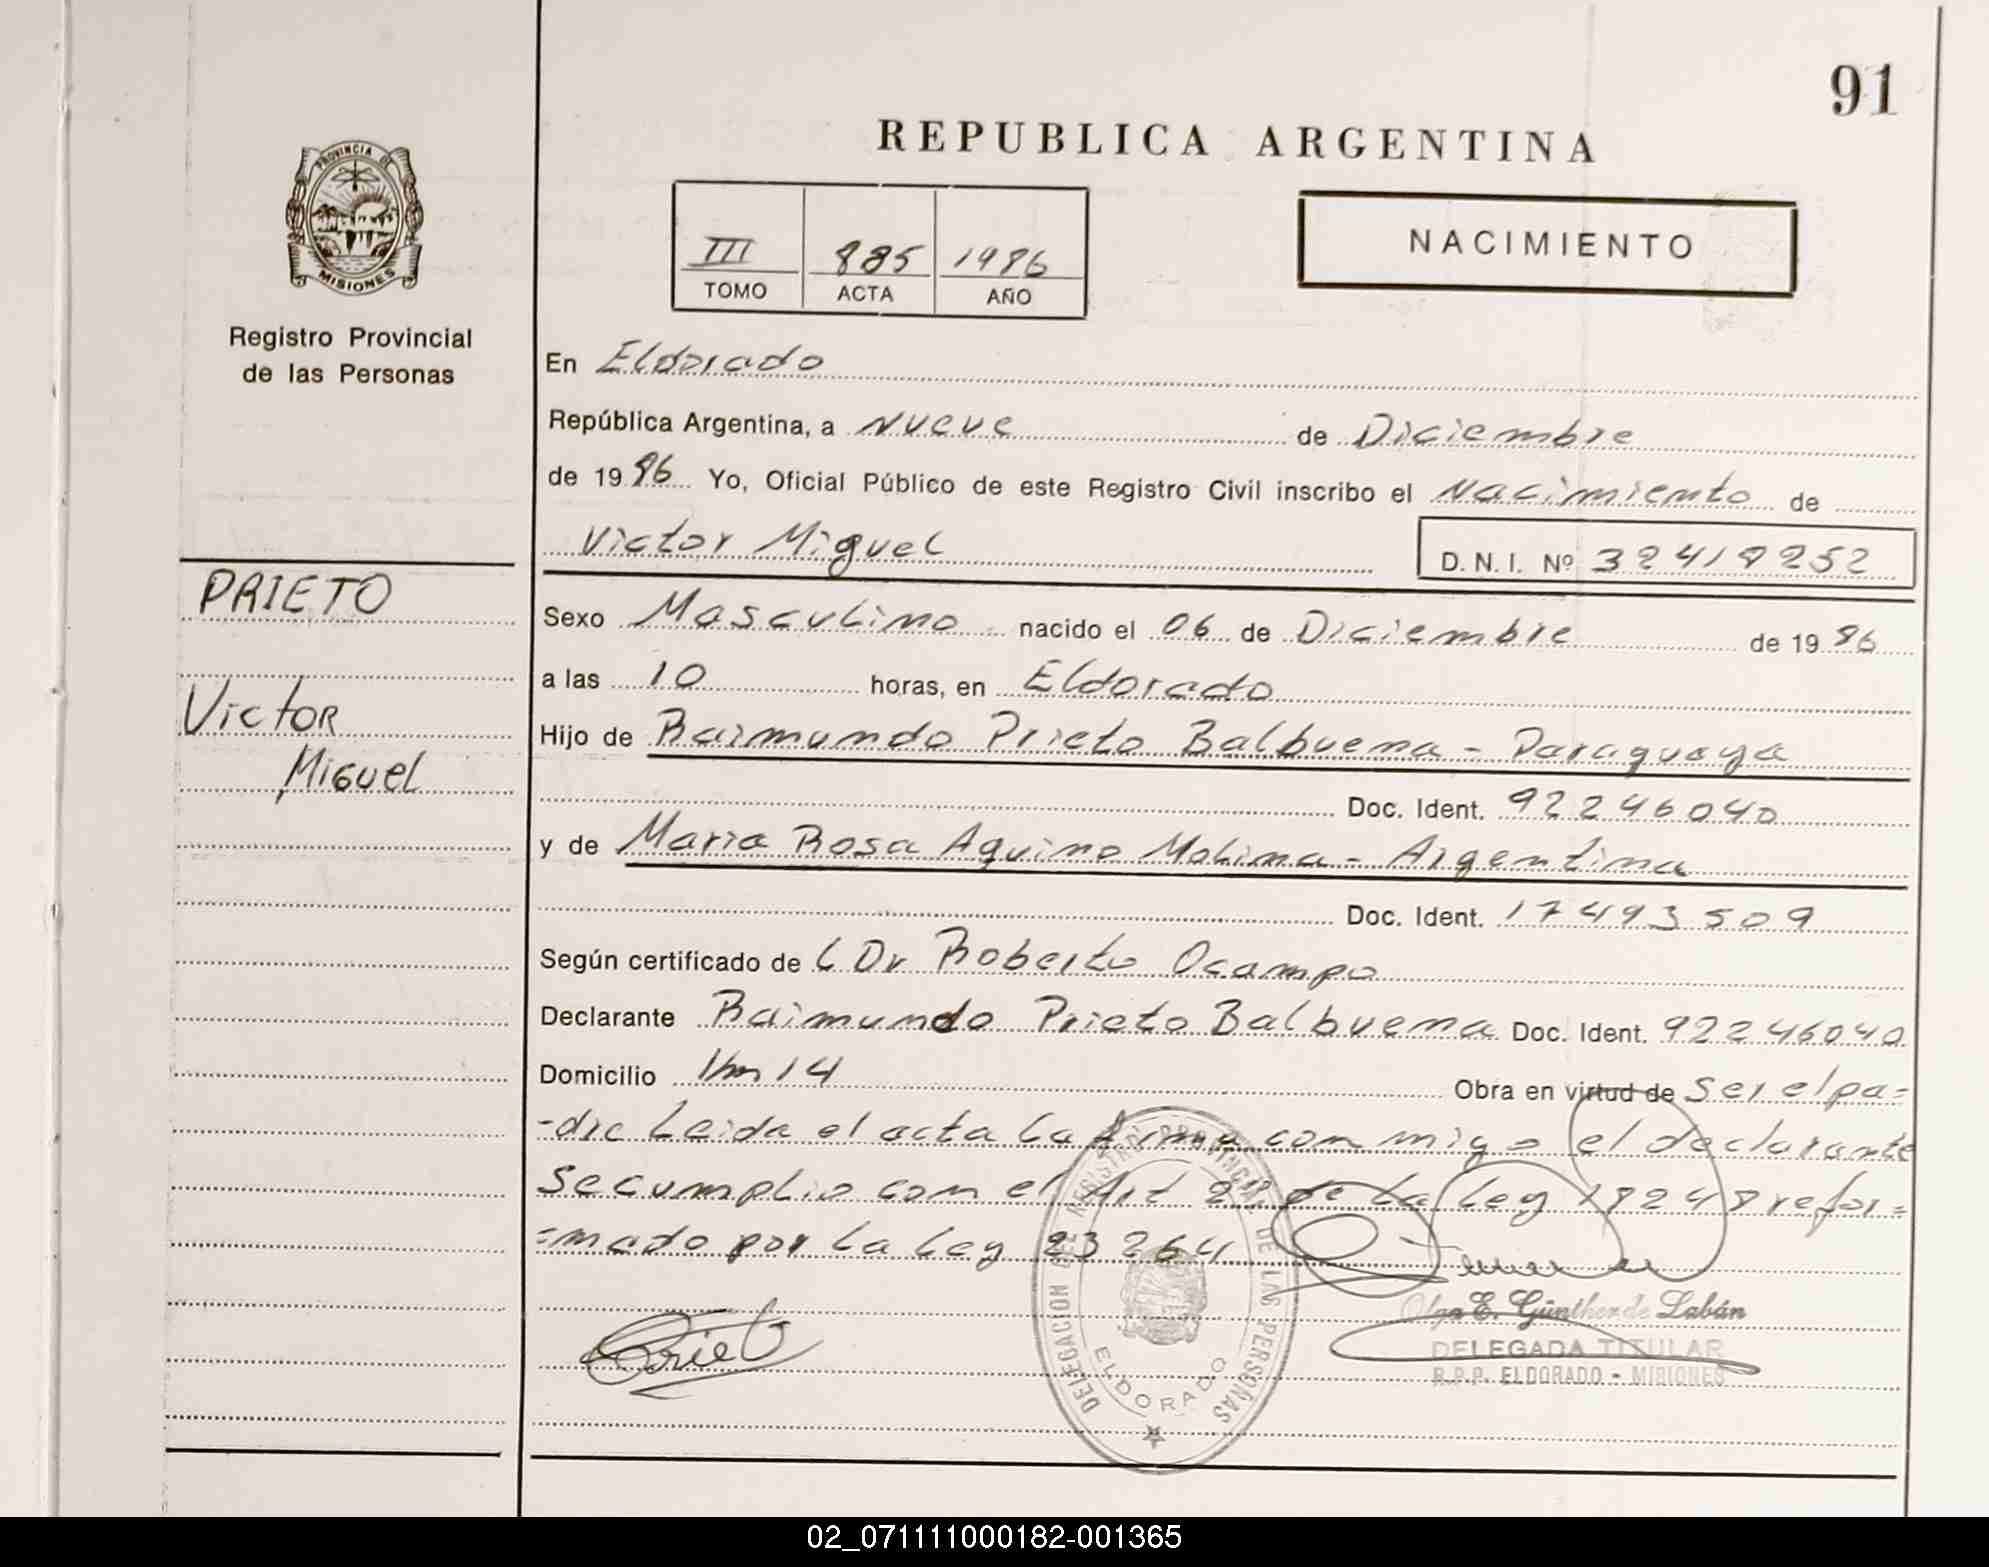 91
REPUBLICA ARGENTINA
PROVINCIA DE
MISIONES
Registro Provincial
de las Personas
III 885 1986
TOMO ACTA AÑO
NACIMIENTO
En Eldorado
República Argentina, a Nueve de Diciembre
de 1986 Yo, Oficial Público de este Registro Civil inscribo el Nacimiento de
Victor Miguel D. N. I. Nº 32419252
PRIETO
Victor
Miguel
Sexo Masculino nacido el 06 de Diciembre de 1986
a las 10 horas, en Eldorado
Hijo de Raimundo Prieto Balbuena - Paraguaya
Doc. Ident. 92246040
y de Maria Rosa Aquino Molina - Argentina
Doc. Ident. 17493509
Según certificado de L Dr Roberto Ocampo
Declarante Raimundo Prieto Balbuena Doc. Ident. 92246040
Domicilio Km 14 Obra en virtud de Ser el pa=
-dre Leida el acta La firma con migo el declarante
Se cumplio con el Art 2º de La Ley 18248 refor=
=mado por La Ley 23264
Olga E. Günther de Labán
DELEGADA TITULAR
R.P.P. ELDORADO - MISIONES
DELEGACION DEL REGISTRO PROVINCIAL DE LAS PERSONAS
ELDORADO
Prieto
02_071111000182-001365